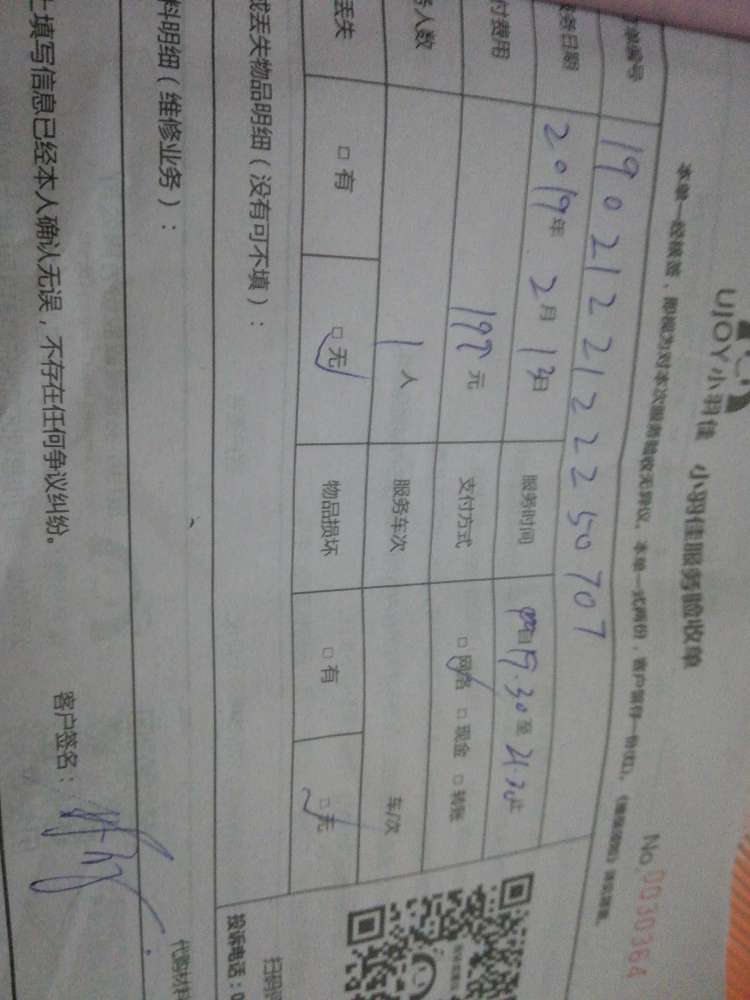 UJOY小羽佳 小羽佳服务验收单
No.0030364
本单一经候签，即视为对本次服务验收无异议。本单一式两份，客户留存一份
单编号 190212212225070 7
务日期 2019年2月13日 服务时间 自19.30至21.30止
付费用 198元 支付方式 □网络 □现金 □转账
务人数 1人 服务车次 车/次
丢失 □有 □无 物品损坏 □有 □无
或丢失物品明细（没有可不填）：
料明细（维修业务）：
扫码
投诉电话：0
代购材料
上填写信息已经本人确认无误，不存在任何争议纠纷。
客户签名：